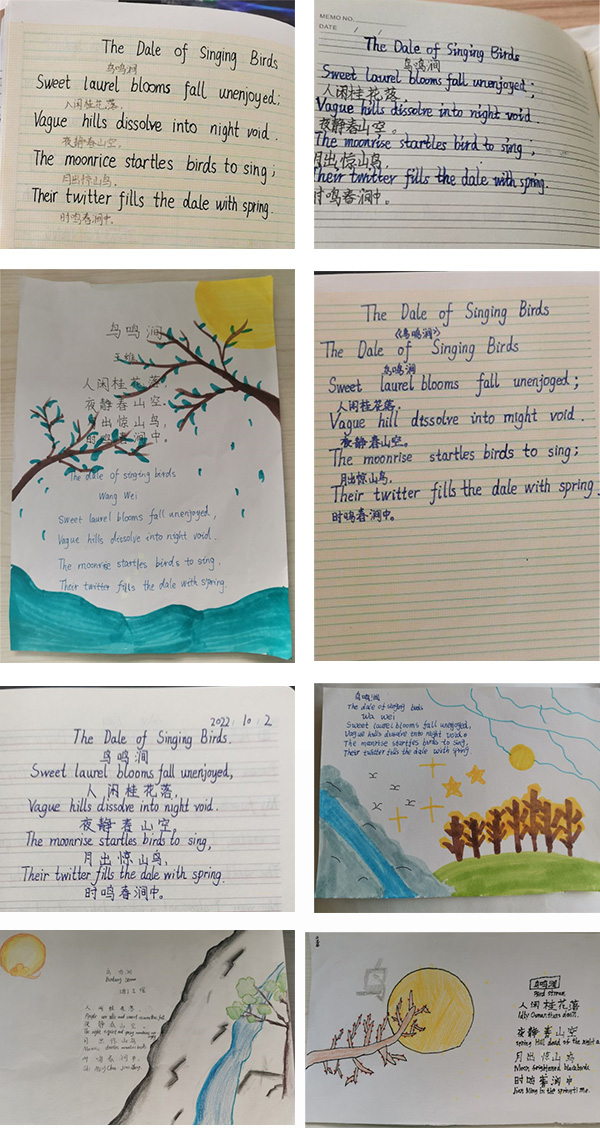 The Dale of Singing Birds
鸟鸣涧
Sweet laurel blooms fall unenjoyed;
人闲桂花落,
Vague hills dissolve into night void.
夜静春山空.
The moonrice startles birds to sing;
月出惊山鸟,
Their twitter fills the dale with spring.
时鸣春涧中.
MEMO NO.
DATE / /
The Dale of Singing Birds
鸟鸣涧
Sweet laurel blooms fall unenjoyed;
人闲桂花落,
Vague hills dissolve into night void.
夜静春山空。
The moonrise startles bird to sing,
月出惊山鸟,
Their twitter fills the dale with spring.
时鸣春涧中.
鸟鸣涧
王维
人闲桂花落,
夜静春山空,
月出惊山鸟,
时鸣春涧中。
The dale of singing birds
Wang Wei
Sweet laurel blooms fall unenjoyed,
Vague hills dissolve into night void.
The moonrise startles birds to sing,
Their twitter fills the dale with spring.
The Dale of Singing Birds
《鸟鸣涧》
The Dale of Singing Birds
鸟鸣涧
Sweet laurel blooms fall unenjoged;
人闲桂花落,
Vague hill dissolve into might void.
夜静春山空。
The moonrise startles birds to sing;
月出惊山鸟,
Their twitter fills the dale with spring.
时鸣春涧中。
2022.10.2
The Dale of Singing Birds.
鸟鸣涧
Sweet laurel blooms fall unenjoyed,
人闲桂花落,
Vague hills dissolve into night void.
夜静春山空,
The moonrise startles birds to sing,
月出惊山鸟,
Their twitter fills the dale with spring.
时鸣春涧中。
鸟鸣涧
The dale of singing birds
Wa Wei
Sweet laurel blooms fall unenjoyed,
Vague hills dissolve into night void。
The moonrise startles birds to sing,
Their twitter fills the dale with spring.
鸟鸣涧
王维
人闲桂花落,
夜静春山空,
月出惊山鸟,
时鸣春涧中.
鸟鸣涧
Bird stream
人闲桂花落
Idly Osmanthus
夜静春山空
spring Hill dead of the night
月出惊山鸟
Moon frightened blackbirds
时鸣春涧中
Jian Ming in the springti me.